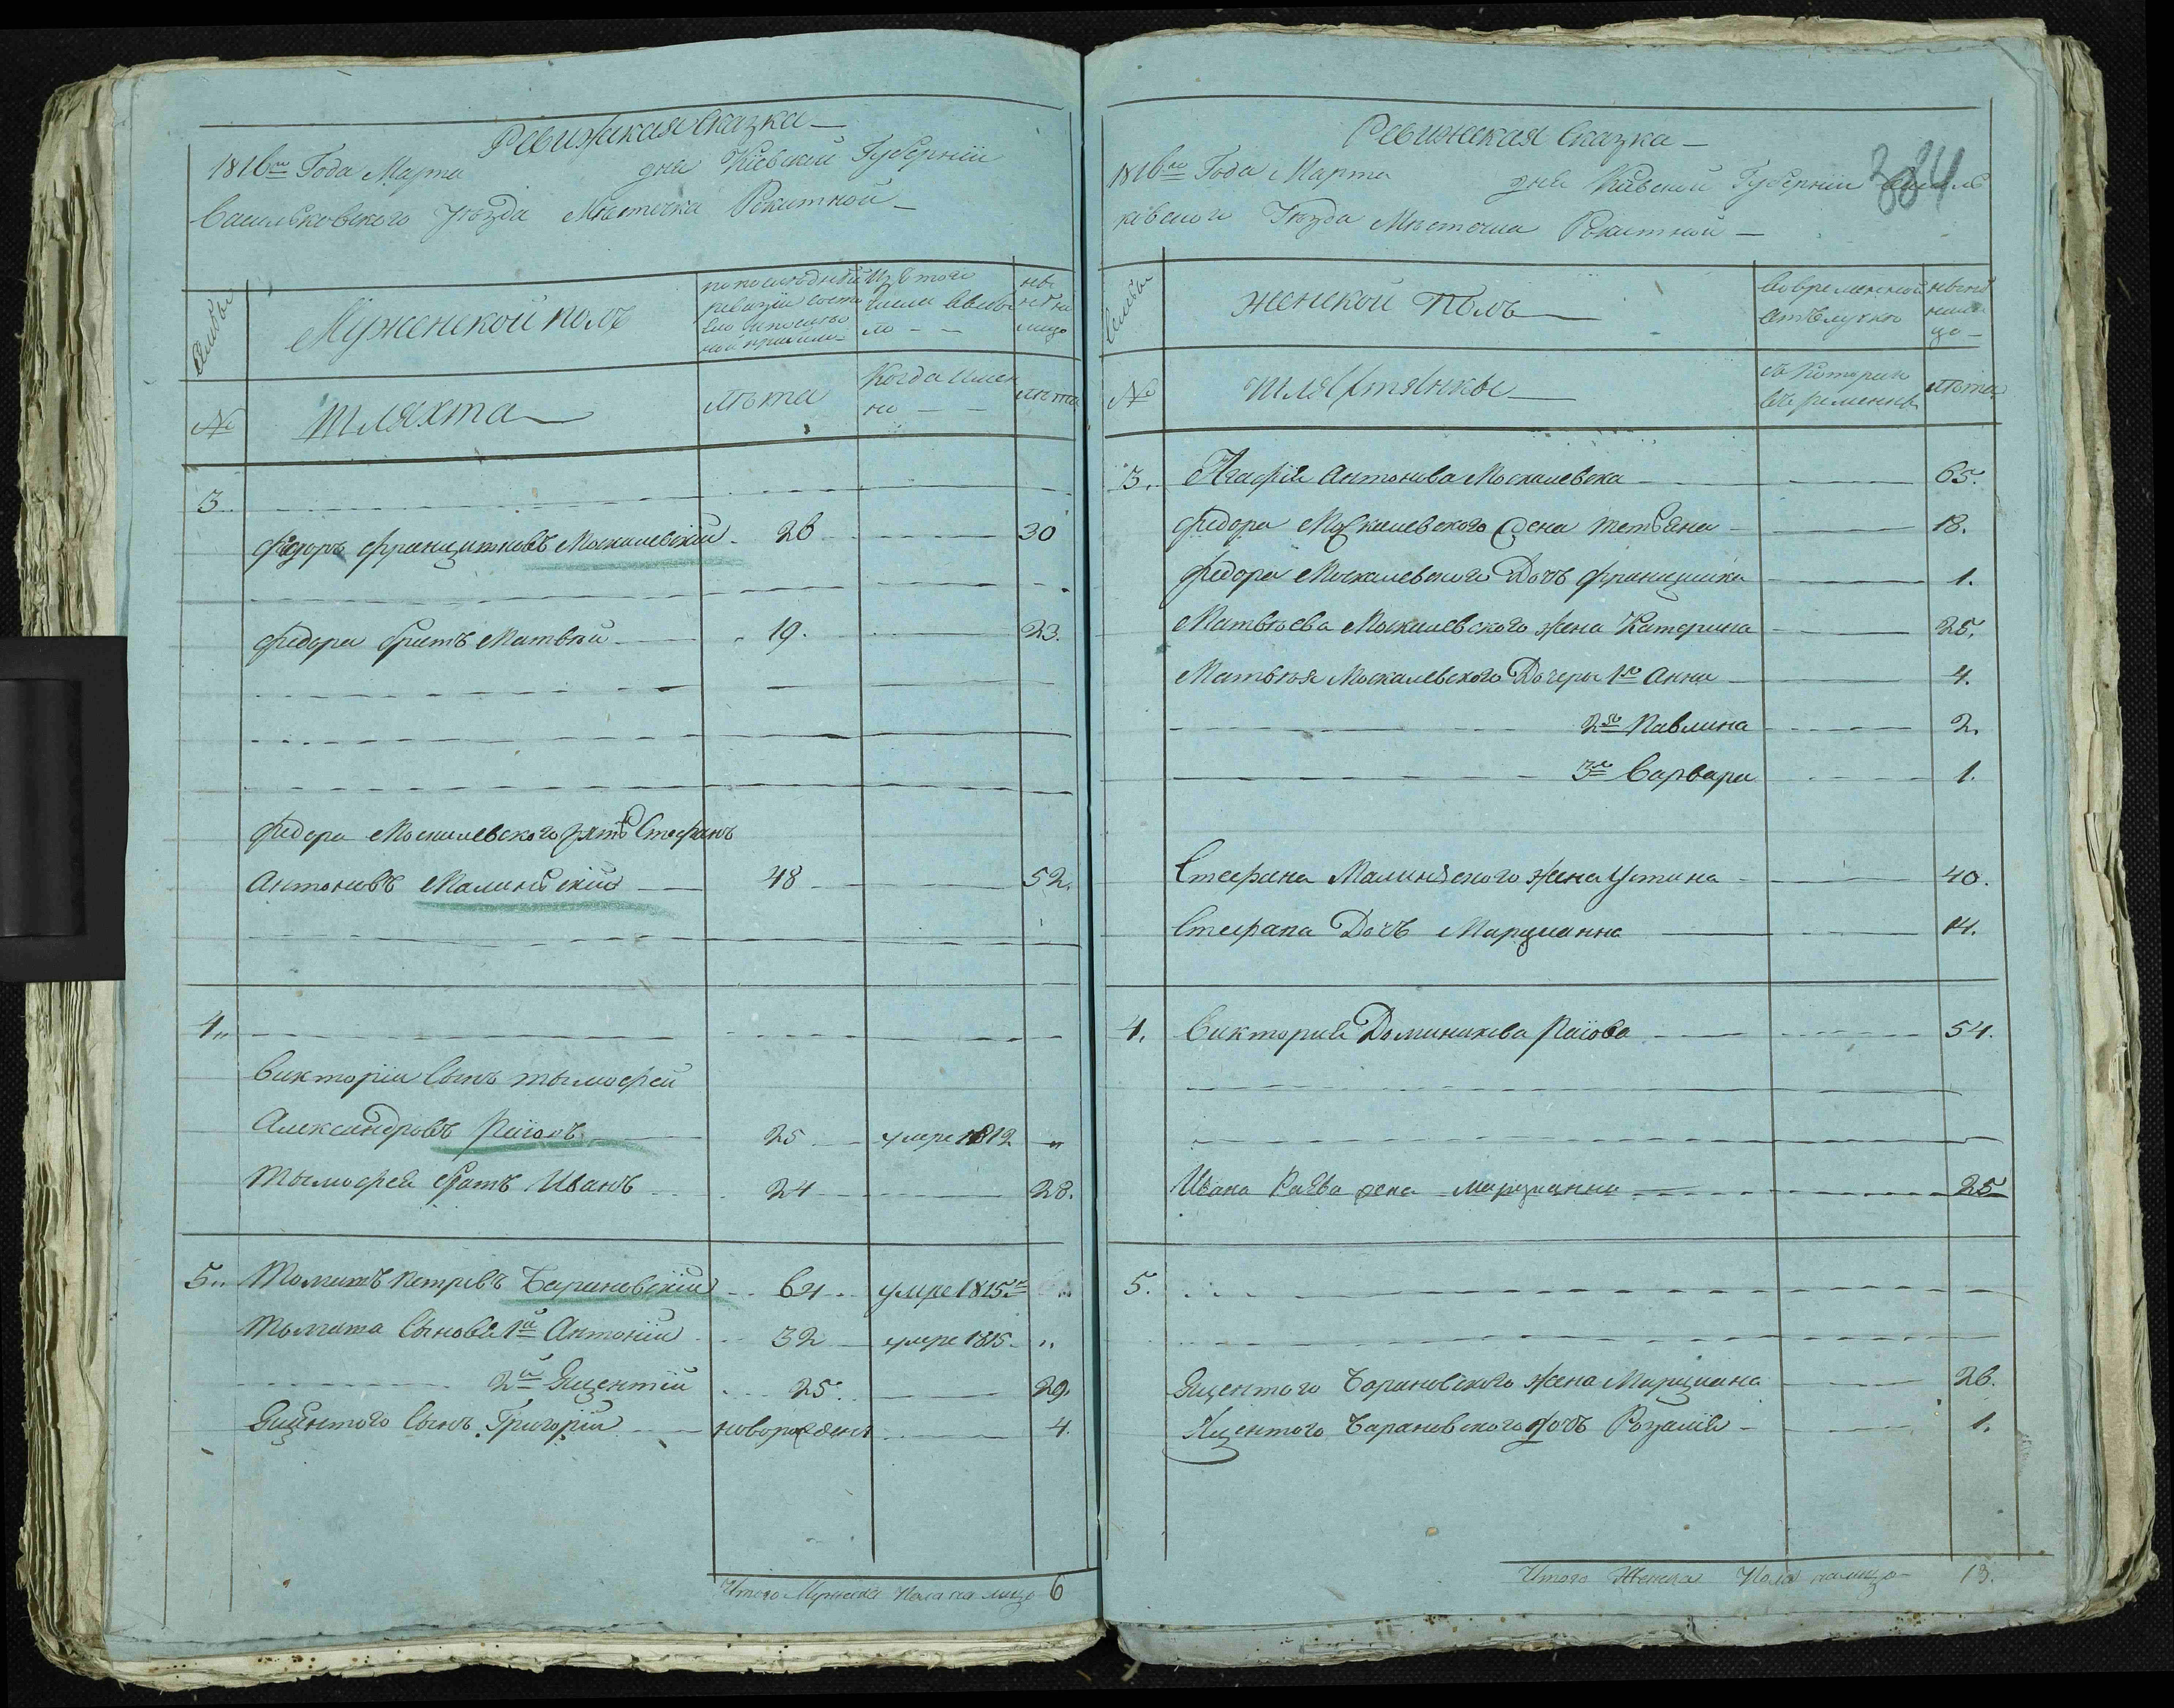 Ревижская сказка
1816го Года Марта дня Кіевской Губерніи
Васильковского уезда Местечка Рокитной
Семьи
Мужеской полъ
по последней ревизіи состояло и после оной прибыло
Изъ того числа выбыло
ныне на лицо
№
шляхта
лета
Когда имен но
лета
3
федоръ францишковъ Москалевскій 26 30
федора братъ Матвей 19. 23.
федора Москалевского зять Стефанъ
Антоновъ Малинскій 48 52.
4
Викторіи Сынъ тымофей
Александровъ Раіовъ 25 умре 1812 "
тымофея братъ Иванъ 24 28.
5. Томашъ Петровъ Барановскій 64 умре 1815го "
Томаша Сыновя 1й Антоній 32 умре 1815 "
2й Яцентій 25. 29.
Яцентого Сынъ Григорій новорожденъ 4.
Итого Мужеска Пола на лицо 6
384
Ревижская Сказка
1816го Года Марта дня Кіевской Губерніи Василь
ковского Уезда Местечка Рокитной
Семьи
женской Полъ
Во временной отлучке
ныне на ли цо
№
шляхтянки
съ Которого времени
лета
3. Агафія Антонова Москалевска 65.
федора Москалевского жена тетьяна 18.
федора Москалевского Дочъ францишка 1.
Матвеева Москалевского жена Катерина 25.
Матвея Москалевского Дочеры 1я Анна 4.
2я Павлина 2.
3я Варвара 1.
Стефана Малинского жена Устина 40.
Стефана Дочъ Марцианна 14.
4. Викторія Доминикова Раіова 54.
Ивана Раева жена марцианна 25
5.
Яцентого Барановского жена Марциана 26.
Яцентого Барановского дочъ Розалія 1.
Итого Женска Пола налицо 13.